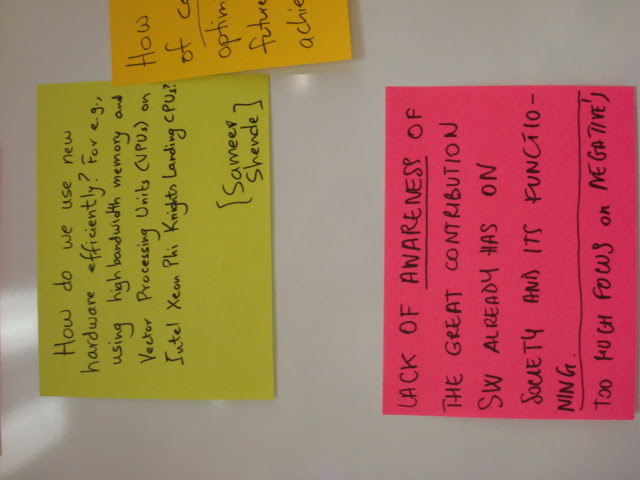 How do we use new
hardware efficiently? For e.g.,
using high bandwidth memory and
Vector Processing Units (VPUs) on
Intel Xeon Phi Knights Landing CPUs?
[Sameer
Shende]
How
of
optimi
future
achie
LACK OF AWARENESS OF
THE GREAT CONTRIBUTION
SW ALREADY HAS ON
SOCIETY AND ITS FUNCTIO-
NING.
TOO MUCH FOCUS ON NEGATIVE'S